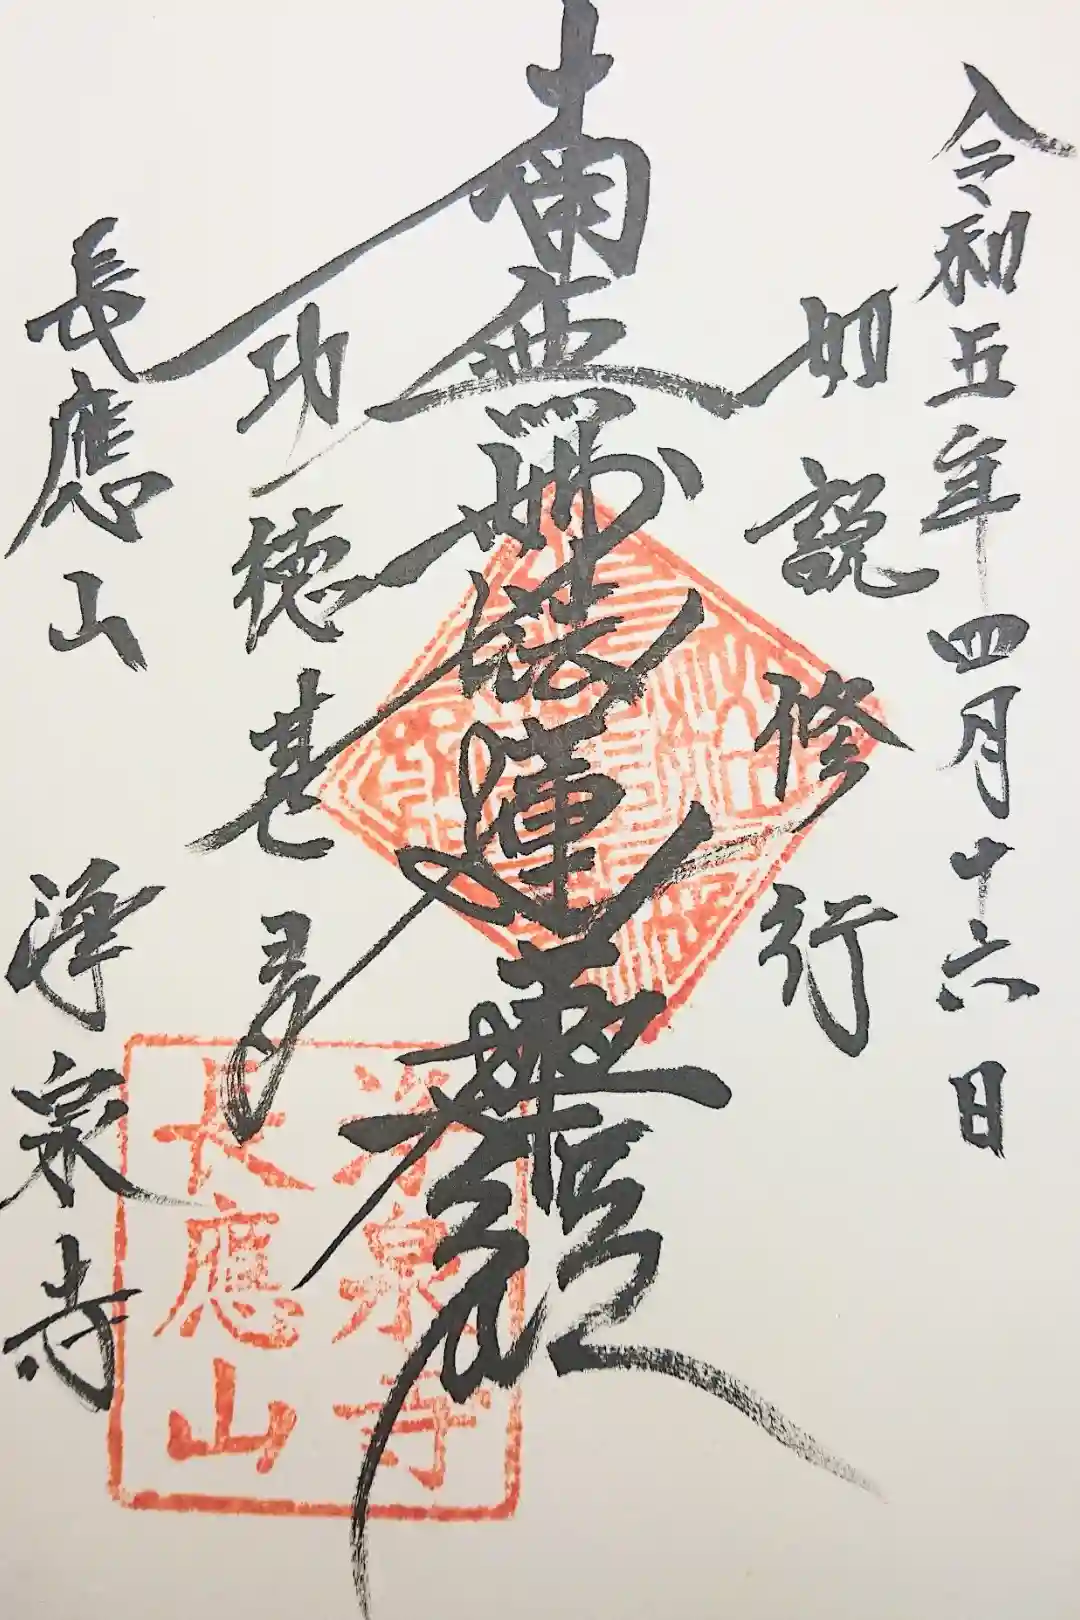 令和五年四月十六日
如説修行
南無妙法蓮華経
功徳甚多
長應山
浄泉寺
浄泉寺
長應山